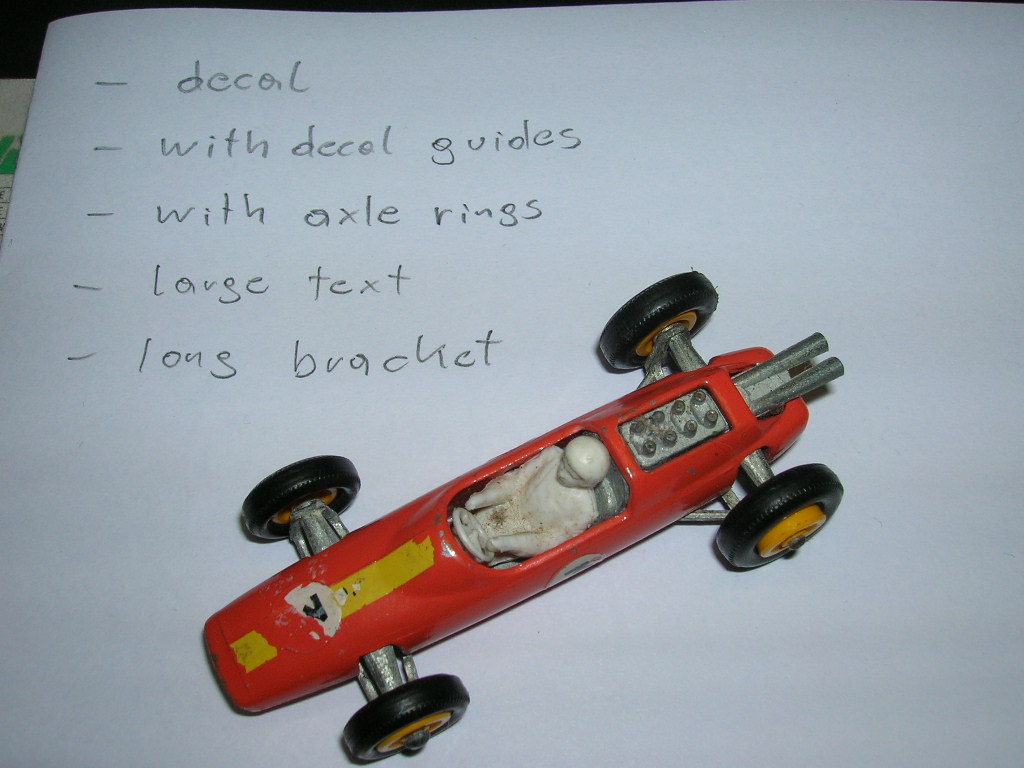 - decal
- with decal guides
- with axle rings
- large text
- long bracket